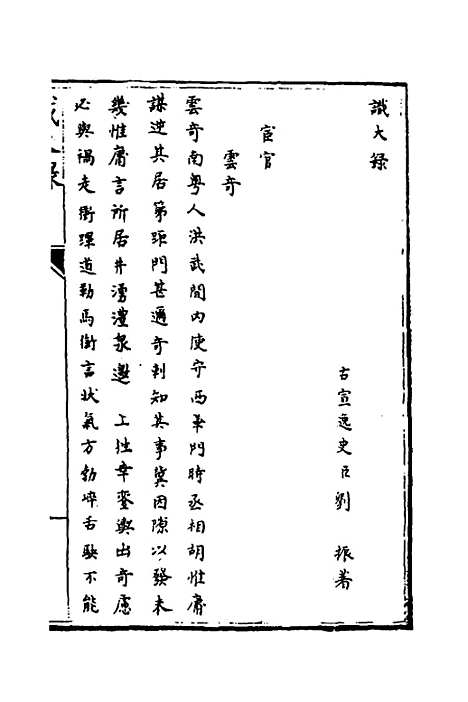 識大錄
古宣逸史臣劉振著
宦官
雲奇
雲奇南粵人洪武間內使守西華門時丞相胡惟庸
謀逆其居第距門甚邇奇刺知其事冀因隙以發未
幾惟庸言所居井湧澧泉邀上往幸鑾輿出奇慮
必與禍走衝蹕道勒馬銜言狀氣方勃崪舌駃不能